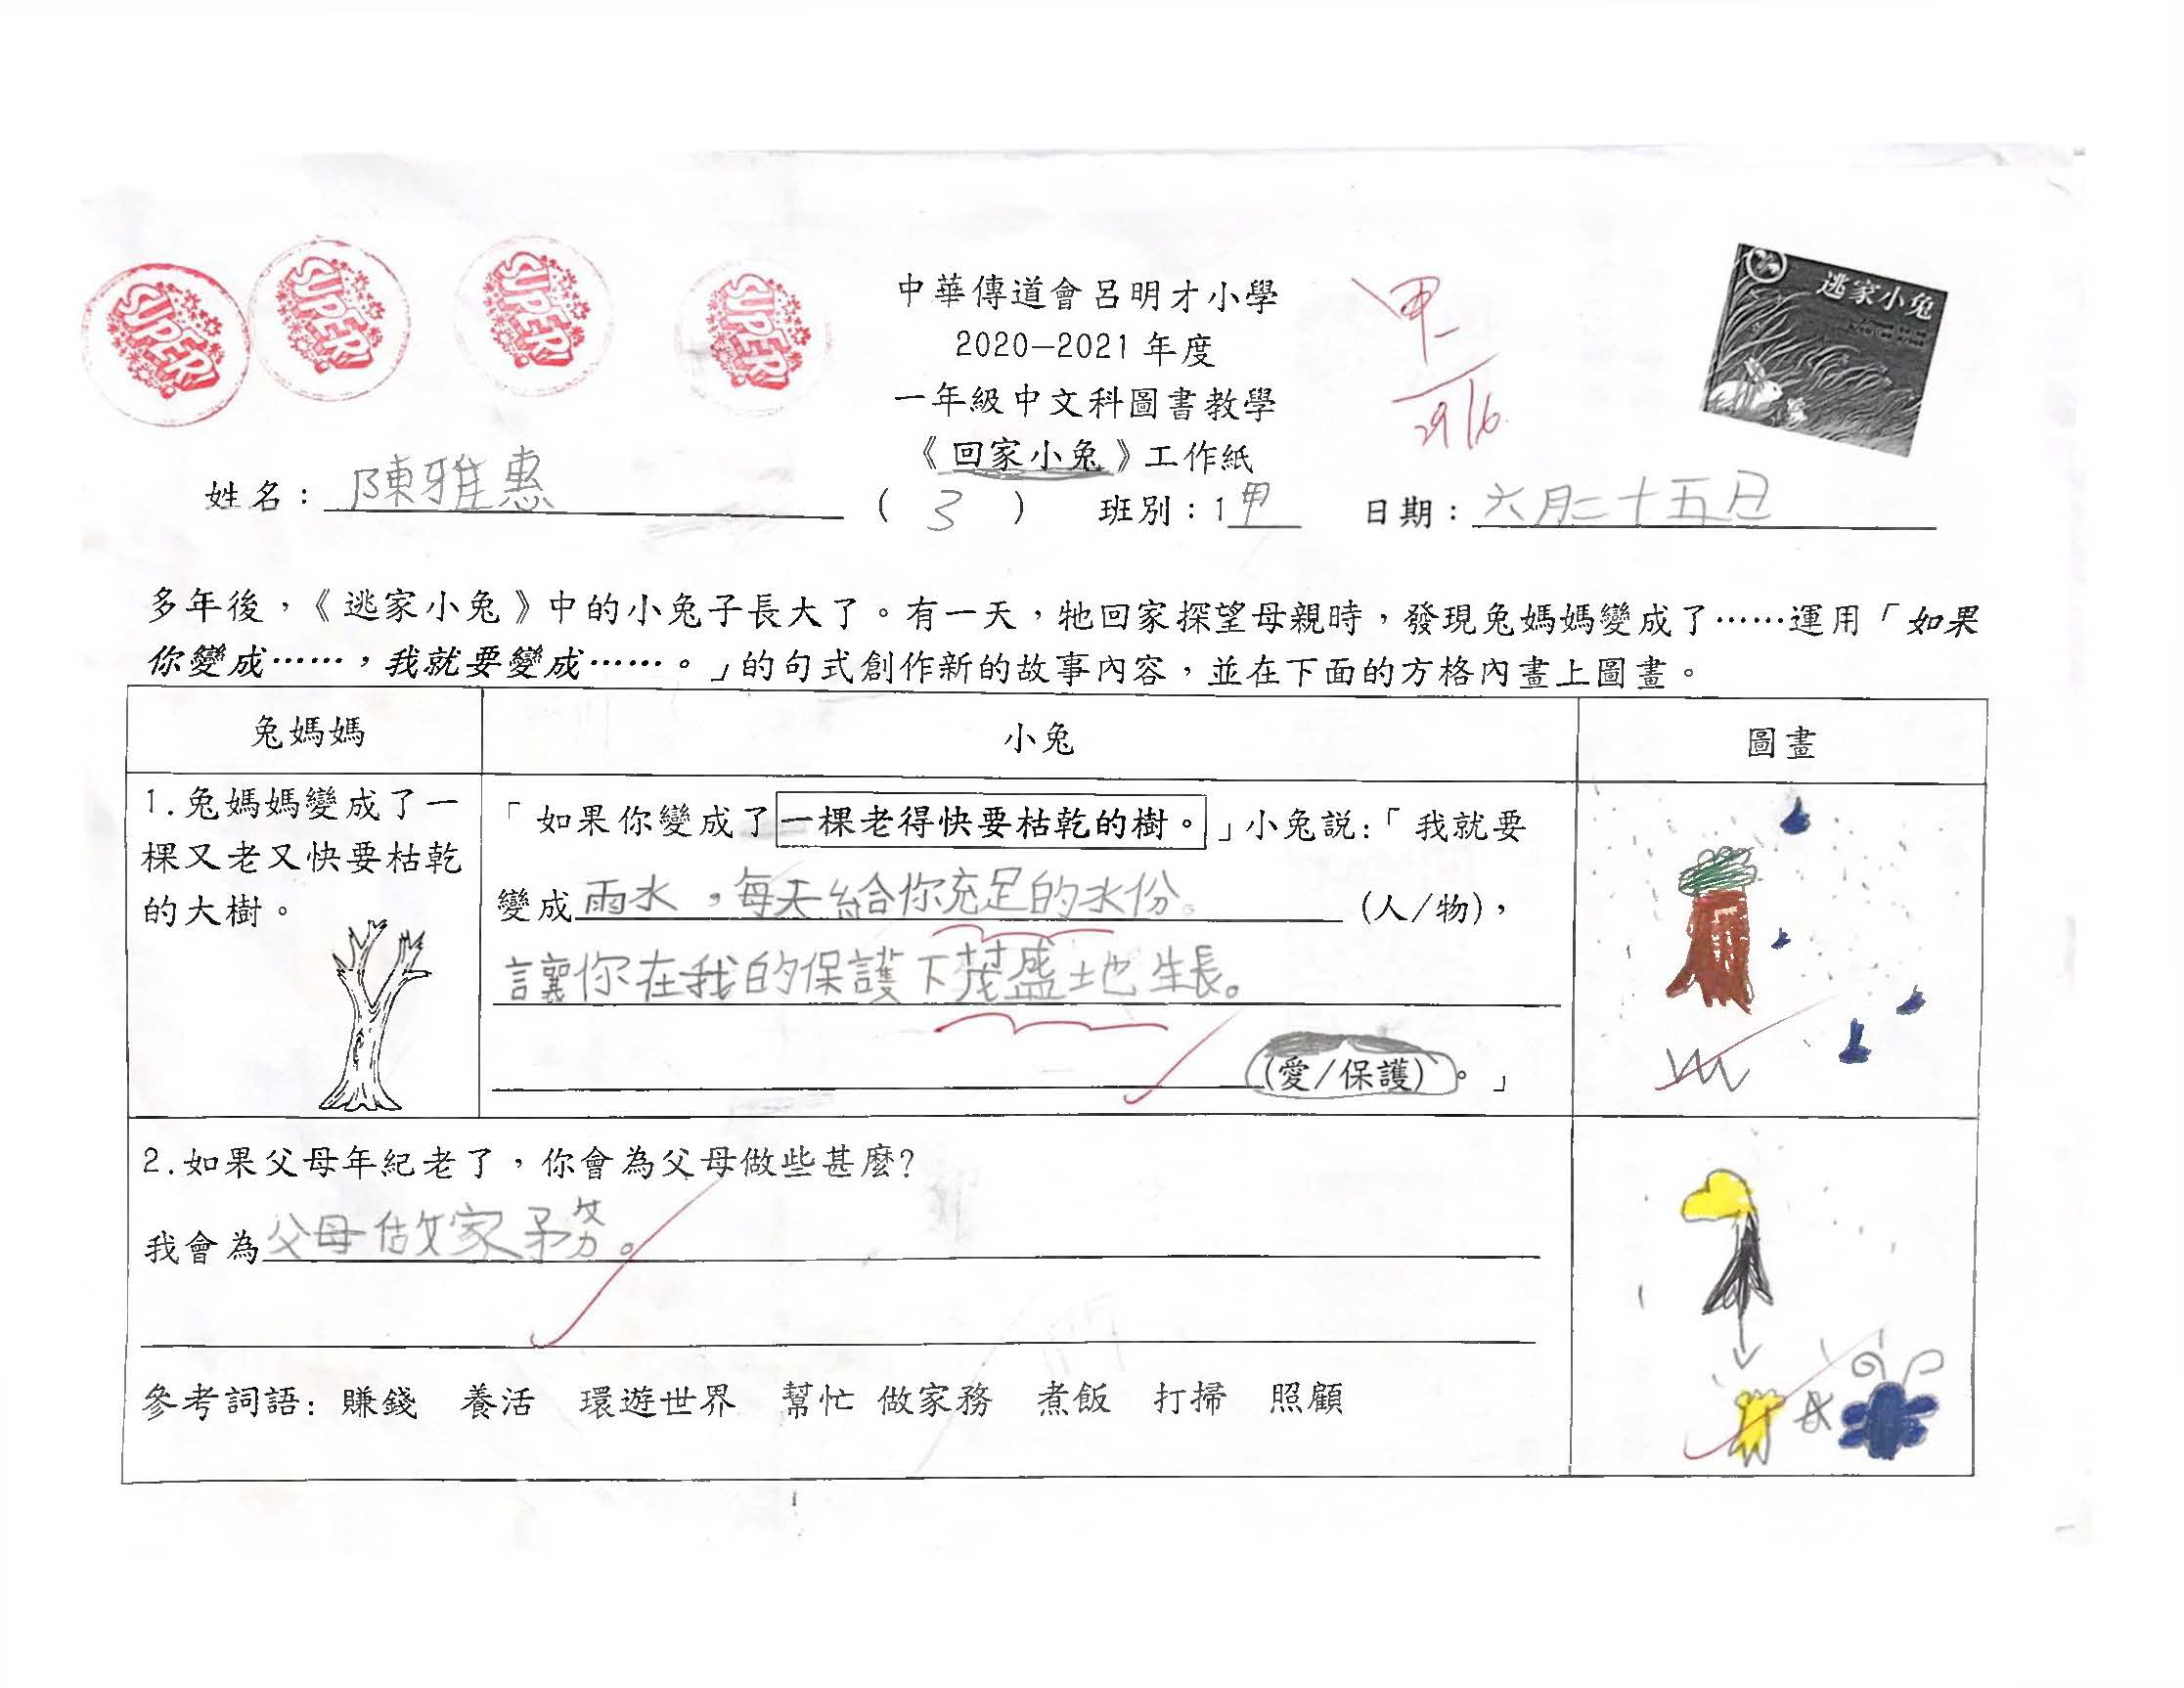 SUPER!
SUPER!
SUPER!
SUPER!
中華傳道會呂明才小學
2020-2021 年度
一年級中文科圖書教學
《回家小兔》工作紙
甲-
29/6
逃家小兔
姓名：陳雅惠 ( 3 ) 班別：1甲 日期：六月二十五日
多年後，《逃家小兔》中的小兔子長大了。有一天，牠回家探望母親時，發現兔媽媽變成了……運用「如果
你變成……，我就要變成……。」的句式創作新的故事內容，並在下面的方格內畫上圖畫。
兔媽媽 小兔 圖畫
1.兔媽媽變成了一
棵又老又快要枯乾
的大樹。
「如果你變成了一棵老得快要枯乾的樹。」小兔說:「我就要
變成雨水，每天給你充足的水份。(人/物)，
讓你在我的保護下茂盛地生長。
(愛/保護)。」
2.如果父母年紀老了，你會為父母做些甚麼?
我會為父母做家務。
參考詞語: 賺錢 養活 環遊世界 幫忙 做家務 煮飯 打掃 照顧